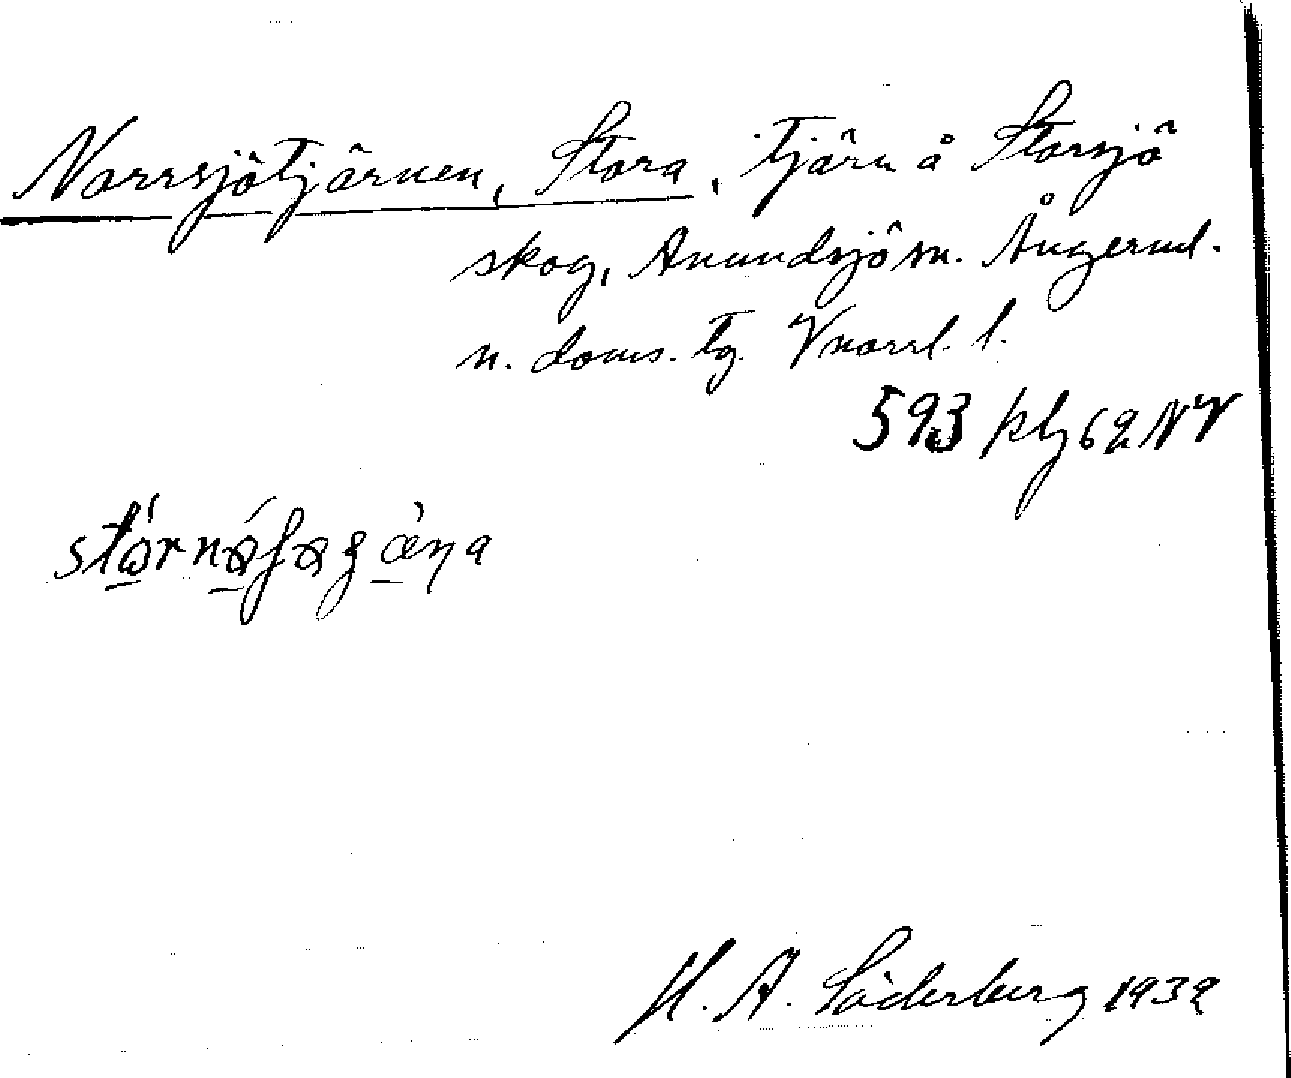 Norrsjötjärnen, Stora, tjärn å Storsjö
skog, Anundsjö sn. Ångerml.
n. doms. tg. Vnorrl. l.
593 plg 62 NV
H. A. Söderberg 1932